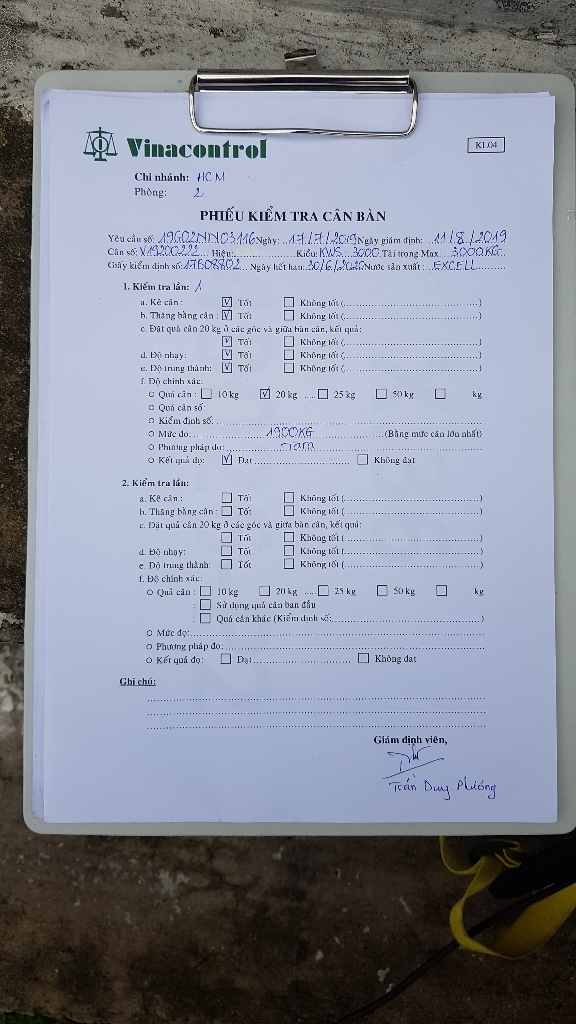 Vinacontrol
KL04
Chi nhánh: HCM
Phòng: 2
PHIẾU KIỂM TRA CÂN BÀN
Yêu cầu số: 19G02NN03116 Ngày: 17/7/2019 Ngày giám định: 11/8/2019
Cân số: V19200222 Hiệu: Kiểu: KWS 3000 Tải trọng Max: 3000KG
Giấy kiểm định số: 17E08802 Ngày hết hạn: 30/6/2020 Nước sản xuất: EXCELL
1. Kiểm tra lần: 1
a. Kê cân : V Tốt Không tốt (....)
b. Thăng bằng cân : V Tốt Không tốt (....)
c. Đặt quả cân 20 kg ở các góc và giữa bàn cân, kết quả:
V Tốt Không tốt (....)
d. Độ nhạy: V Tốt Không tốt (....)
e. Độ trung thành: V Tốt Không tốt (....)
f. Độ chính xác:
Quả cân : 10 kg V 20 kg ..... 25 kg 50 kg kg
Quả cân số:
Kiểm định số:
Mức đo: 1900KG (Bằng mức cân lớn nhất)
Phương pháp đo:
Kết quả đọ: V Đạt Không đạt
2. Kiểm tra lần:
a. Kê cân : Tốt Không tốt (....)
b. Thăng bằng cân : Tốt Không tốt (....)
c. Đặt quả cân 20 kg ở các góc và giữa bàn cân, kết quả:
Tốt Không tốt (....)
d. Độ nhạy: Tốt Không tốt (....)
e. Độ trung thành: Tốt Không tốt (....)
f. Độ chính xác:
Quả cân : 10 kg 20 kg ..... 25 kg 50 kg kg
: Sử dụng quả cân ban đầu
: Quả cân khác (Kiểm định số: )
Mức đọ:
Phương pháp đo:
Kết quả đọ: Đạt Không đạt
Ghi chú:
Giám định viên,
Trần Duy Phương